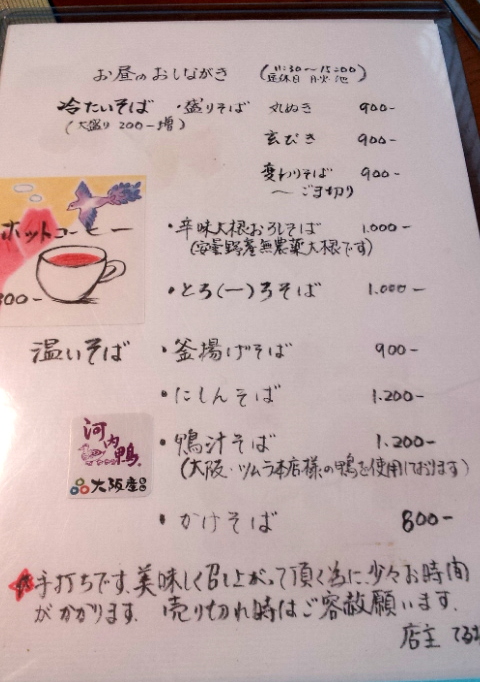 お昼のおしながき (11:30〜15:00)
定休日 月火
冷たいそば ・盛りそば 丸ぬき 900-
(大盛り 200-増)
玄びき 900-
変わりそば 900-
〜ごま切り
ホットコーヒー
300-
・辛味大根おろしそば 1.000-
(安曇野産無農薬大根です)
・とろ(ー)ろそば 1.000-
温いそば ・釜揚げそば 900-
・にしんそば 1.200-
河内鴨
大阪産
・鴨汁そば 1.200-
(大阪・ツムラ本店様の鴨を使用しております)
・かけそば 800-
★手打ちです、美味しく召し上がって頂く為に、少々お時間
がかかります. 売り切れ時はご容赦願います.
店主